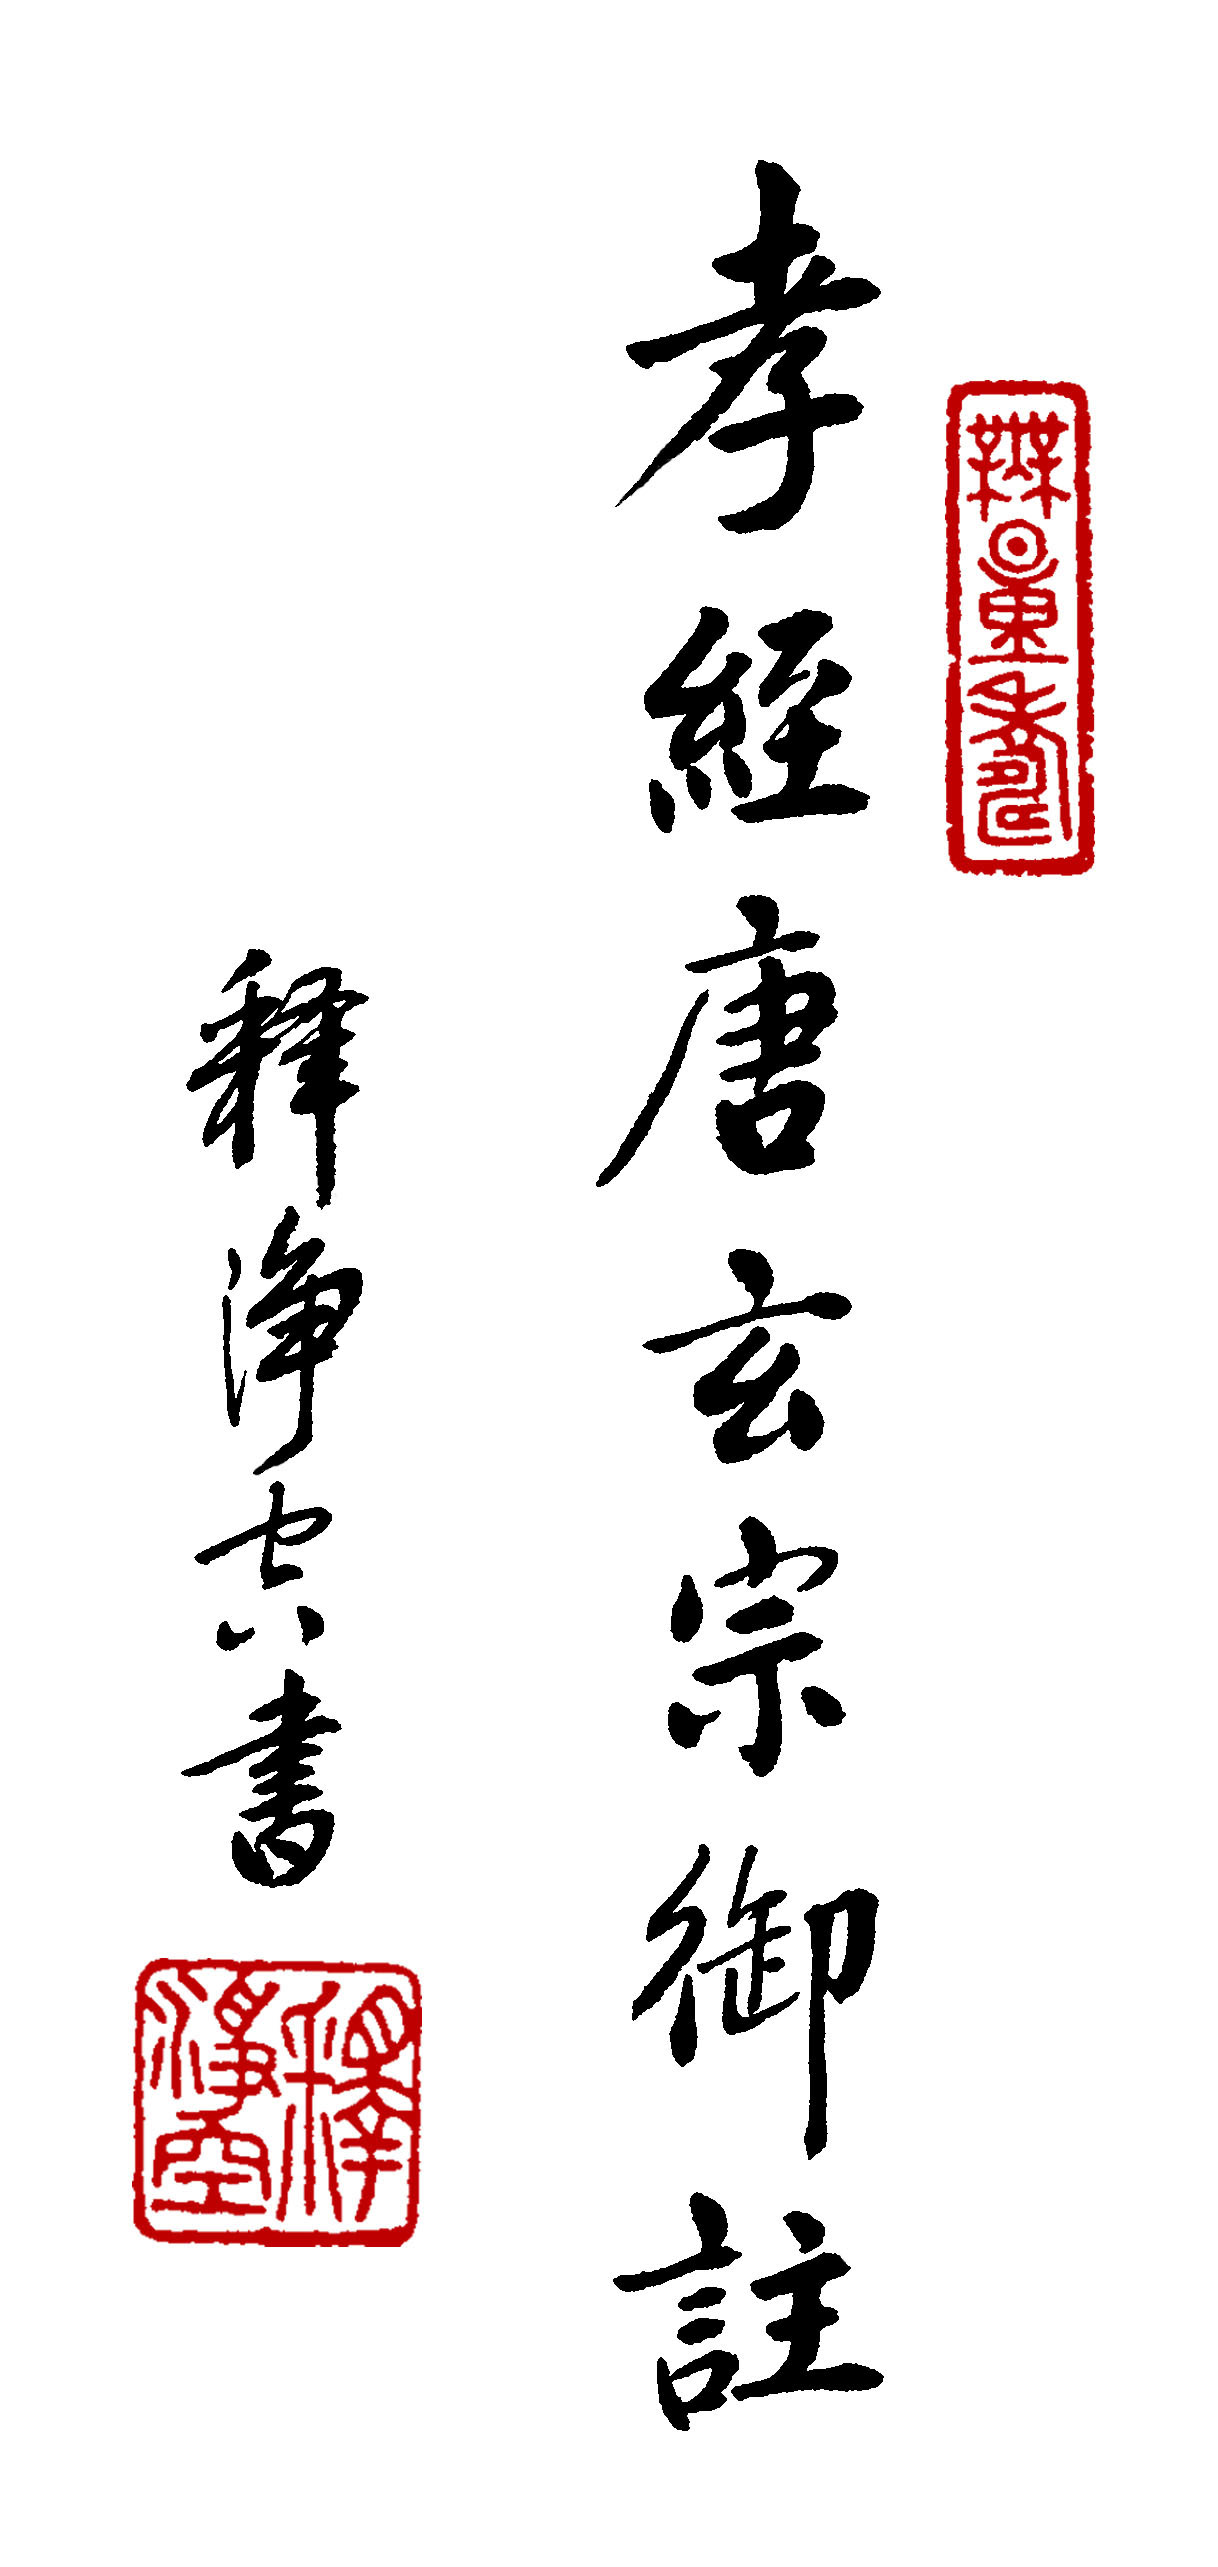 無量壽
孝經唐玄宗御註
釋淨空書
釋淨空